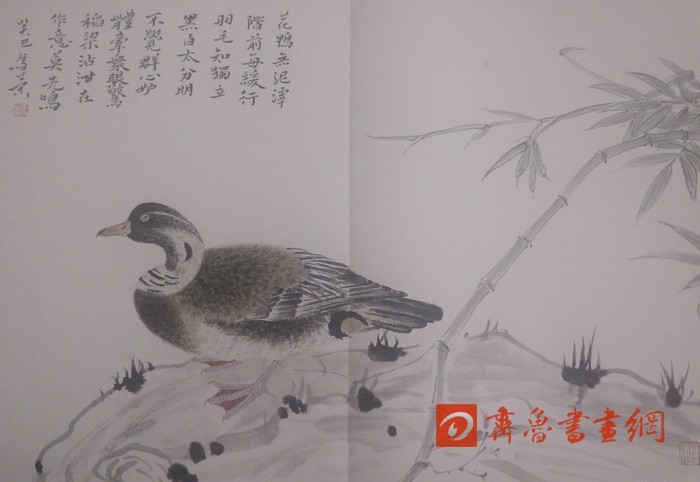 花鴨無泥滓
階前每緩行
羽毛知獨立
黑白太分明
不覺群心妒
體牽衆眼驚
稻梁沾汝在
作意莫先鳴
癸巳馬
齊魯書畫網